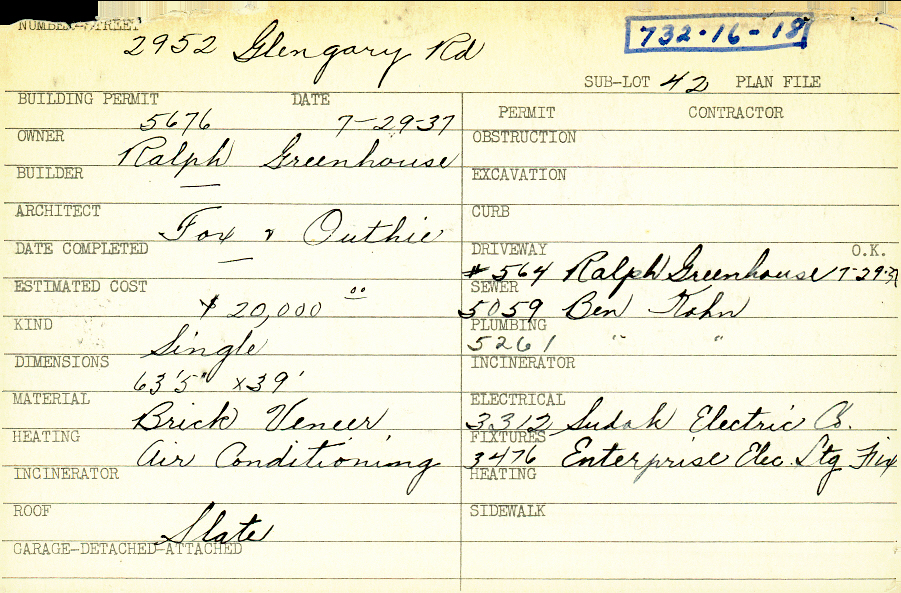 NUMBER-STREET
2952 Glengary Rd
732-16-18
SUB-LOT 42 PLAN FILE
BUILDING PERMIT DATE
5676 7-29-37
OWNER
Ralph Greenhouse
BUILDER
—
ARCHITECT
Fox & Duthie
DATE COMPLETED
—
ESTIMATED COST
$ 20,000 00
KIND
Single
DIMENSIONS
63'5" x 39'
MATERIAL
Brick Veneer
HEATING
Air Conditioning
INCINERATOR
ROOF
Slate
GARAGE-DETACHED-ATTACHED
PERMIT CONTRACTOR
OBSTRUCTION
EXCAVATION
CURB
DRIVEWAY O.K.
# 564 Ralph Greenhouse 7-29-37
SEWER
5059 Ben Kohn
PLUMBING
5261 " "
INCINERATOR
ELECTRICAL
3312 Sudak Electric Co.
FIXTURES
3476 Enterprise Elec. Ltg Fix
HEATING
SIDEWALK